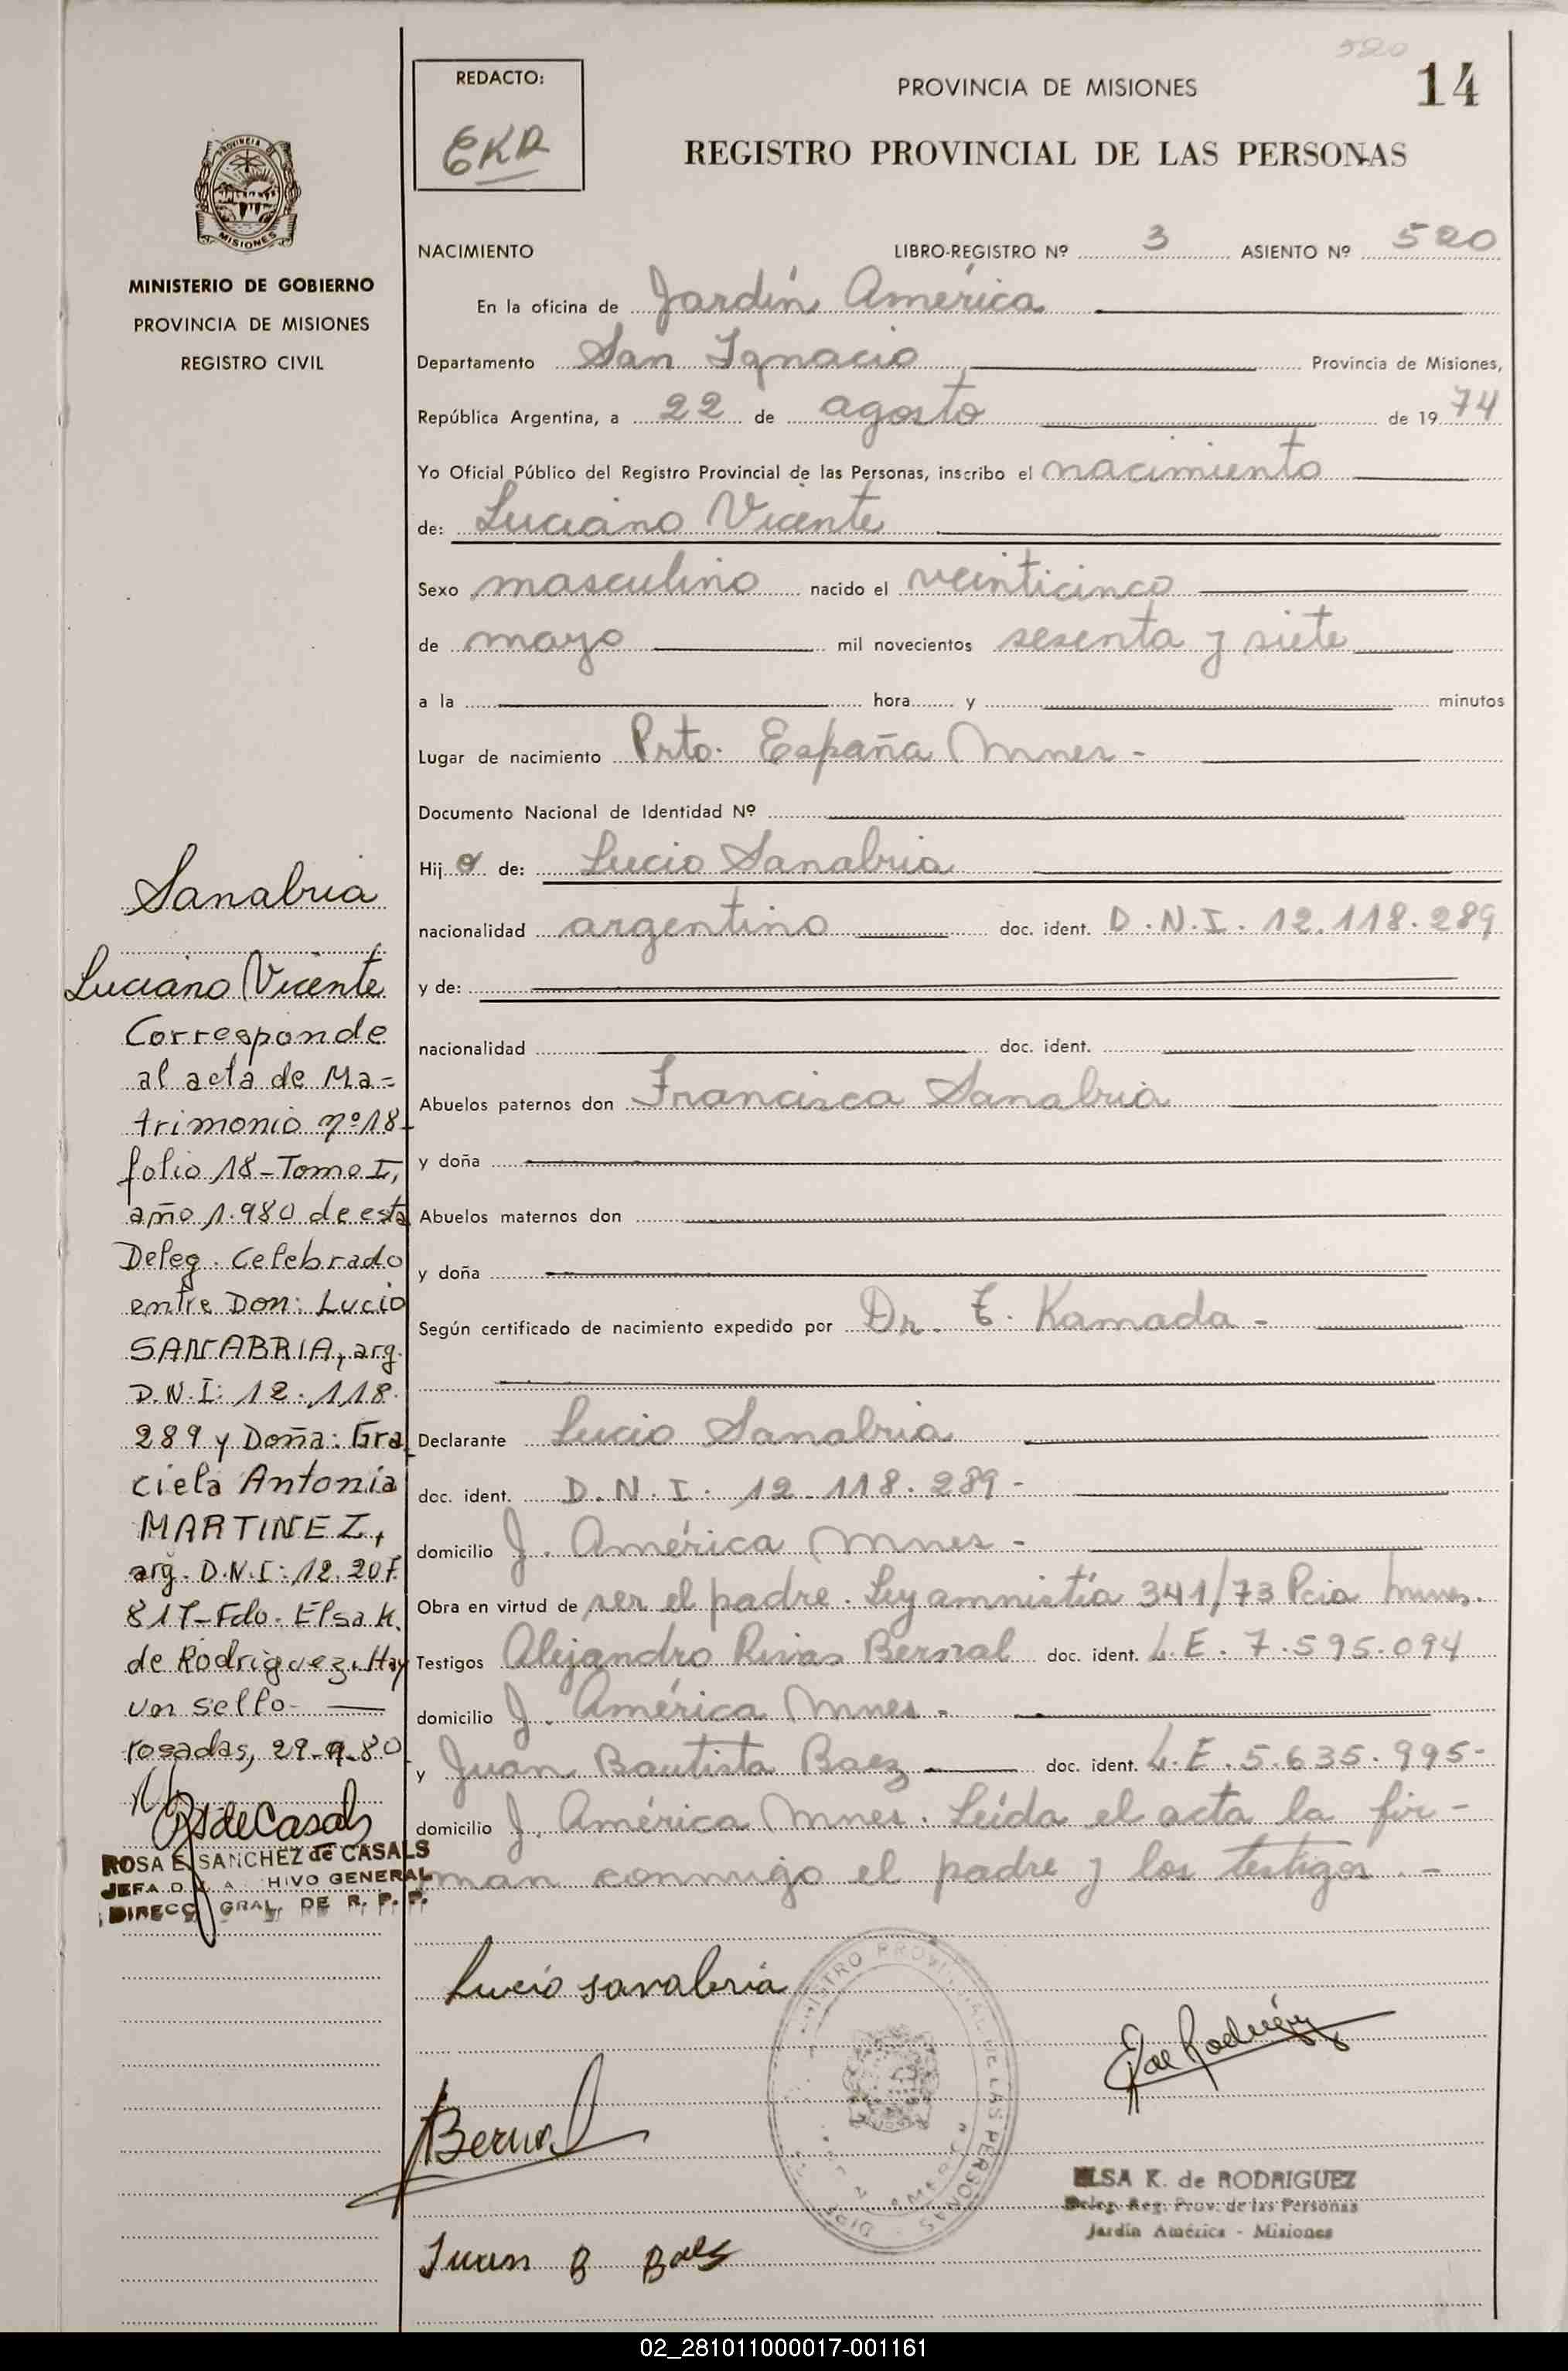 520
14
REDACTO:
EKR
PROVINCIA DE MISIONES
REGISTRO PROVINCIAL DE LAS PERSONAS
PROVINCIA DE
MISIONES
MINISTERIO DE GOBIERNO
PROVINCIA DE MISIONES
REGISTRO CIVIL
NACIMIENTO LIBRO-REGISTRO Nº 3 ASIENTO Nº 520
En la oficina de Jardín América
Departamento San Ignacio Provincia de Misiones,
República Argentina, a 22 de agosto de 1974
Yo Oficial Público del Registro Provincial de las Personas, inscribo el nacimiento
de: Luciano Vicente
Sexo masculino nacido el veinticinco
de mayo mil novecientos sesenta y siete
a la hora y minutos
Lugar de nacimiento Prto. España Mnes -
Documento Nacional de Identidad Nº
Hijo de: Lucio Sanabria
nacionalidad argentino doc. ident. D.N.I. 12.118.289
y de:
nacionalidad doc. ident.
Abuelos paternos don Francisca Sanabria
y doña
Abuelos maternos don
y doña
Según certificado de nacimiento expedido por Dr. T. Kamada -
Declarante Lucio Sanabria
doc. ident. D.N.I. 12.118.289 -
domicilio J. América Mnes -
Obra en virtud de ser el padre. Ley amnistía 341/73 Pcia Mnes.
Testigos Alejandro Rivas Bernal doc. ident. L.E. 7.595.094
domicilio J. América Mnes -
y Juan Bautista Baez doc. ident. L.E. 5.635.995-
domicilio J. América Mnes. Leída el acta la fir-
man conmigo el padre y los testigos. -
Sanabria
Luciano Vicente
Corresponde
al acta de Ma-
trimonio nº 18-
folio 18-Tomo I,
año 1.980 de esta
Deleg. Celebrado
entre Don: Lucio
SANABRIA, arg.
D.N.I: 12.118.
289 y Doña: Gra-
ciela Antonia
MARTINEZ,
arg. D.N.I: 12.207.
817-Fdo. Elsa K.
de Rodriguez. Hay
un sello-
Posadas, 29-9-80
RSdeCasals
ROSA E. SANCHEZ de CASALS
JEFA D A HIVO GENERAL
DIRECC GRAL DE R. P. P.
Lucio sanabria
Bernal
Juan B Baes
REGISTRO PROVINCIAL DE LAS PERSONAS
ELSA K. de RODRIGUEZ
Deleg. Reg. Prov. de las Personas
Jardín América - Misiones
02_281011000017-001161